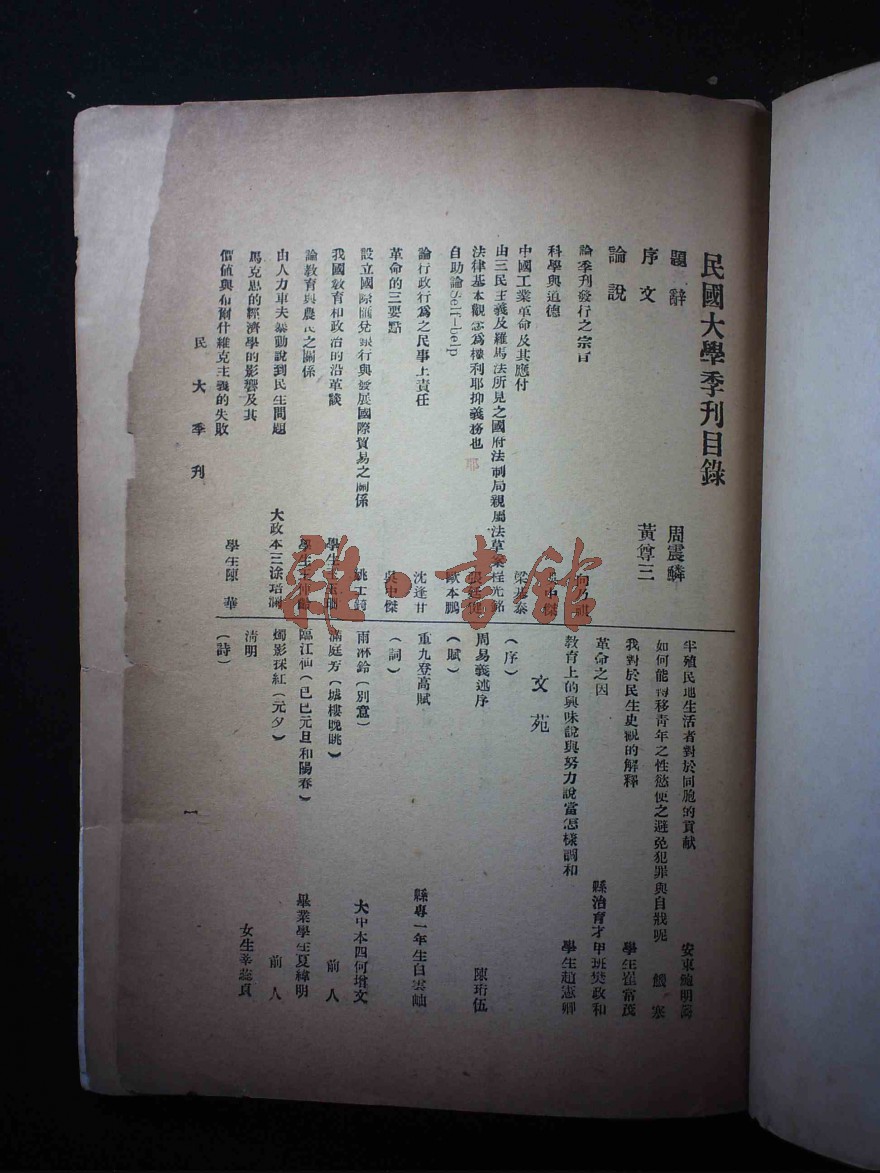 民國大學季刊目錄
題辭 周震鱗
序文 黃尊三
論說
論季刊發行之宗旨 向乃祺
科學與道德 吳中傑
中國工業革命及其應付 梁基泰
由三民主義及羅馬法所見之國府法制局親屬法草案 程光銘
法律基本觀念為權利耶抑義務也
耶
自助論Self-help 歐本鵬
論行政行為之民事上責任 沈逢甘
革命的三要點 吳中傑
設立國際匯兌銀行與發展國際貿易之關係 姚工錡
我國教育和政治的沿革談 學生
論教育與農民之關係 學生
由人力車夫暴動說到民生問題 大政本三
馬克思的經濟學的影響及其
價值與布爾什維克主義的失敗 學生陳華
半殖民地生活者對於同胞的貢獻 安東鮑明
如何能得移青年之性慾使之避免犯罪與自戕呢 饑寒
我對於民生史觀的解釋 學生崔富茂
革命之因 縣治育才甲班樊政和
教育上的興味說與努力說當怎樣調和 學生趙憲卿
文苑
(序)
周易義述序 陳珩伍
(賦)
重九登高賦 縣專一年生白雲岫
(詞)
雨淋鈴(別意) 大中本四何增文
滿庭芳(城樓晚眺) 前人
臨江仙(己巳元旦和陽春) 畢業學生夏緯明
燭影探紅(元夕) 前人
清明 女生
(詩)
民大季刊
一
雜·書館